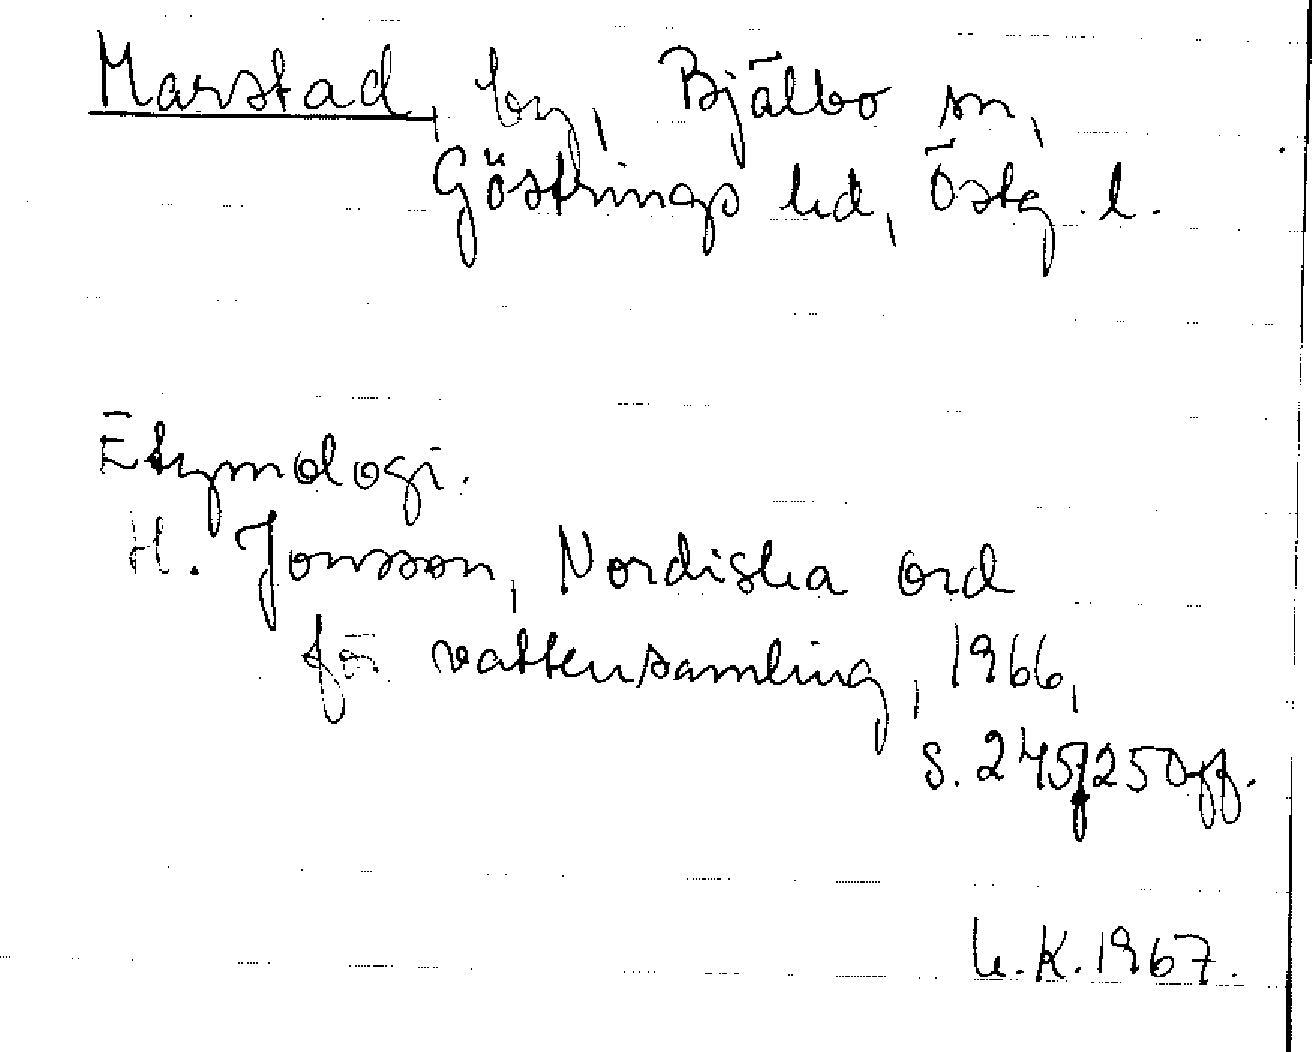 Marstad, by, Bjälbo sn,
Göstrings hd, Östg. l.
Etymologi.
H. Jonsson, Nordiska ord
för vattensamling, 1966,
s. 245f, 250ff.
U.K. 1967.